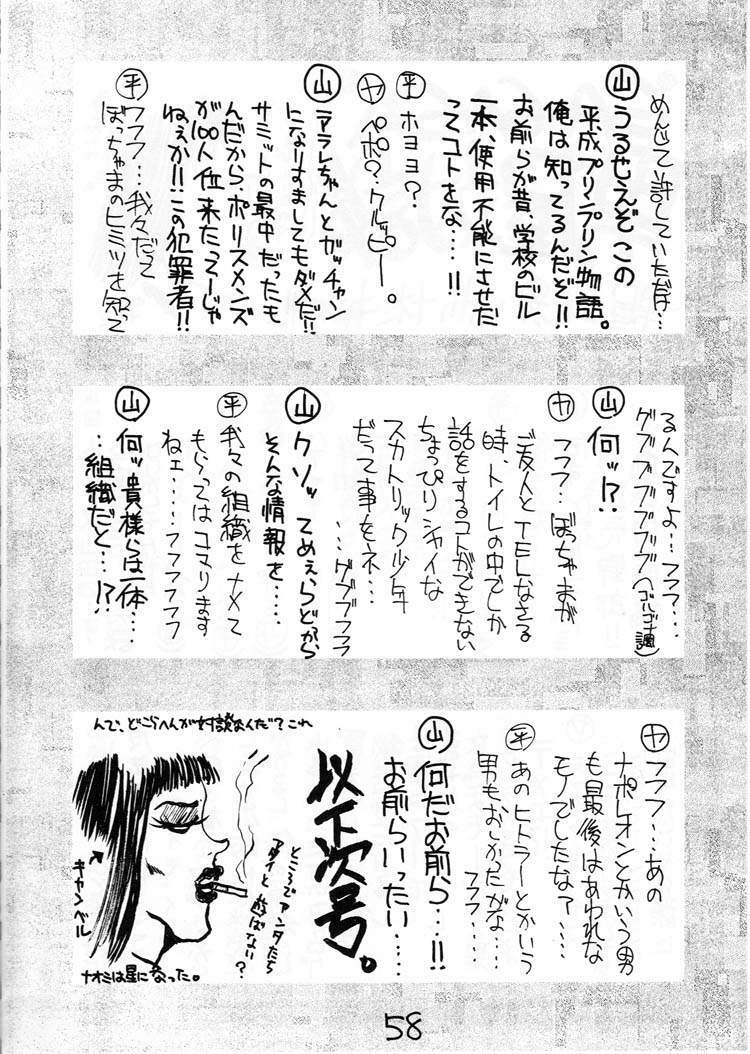 めんじて許していただけ…
㊤うるせえぞこの
平成プリンプリン物語。
俺は知ってるんだぞ!!
お前らが昔、学校のビル
一本、使用不能にさせた
ってコトをな…!!
平 ホヨヨ?
ヤ ペポ?クルッピー。
山 アラレちゃんとガッチャン
になりすましてもダメだ!!
サミットの最中だったも
んだから、ポリスメンズ
が100人位来たってーじゃ
ねぇか!!この犯罪者!!
平 ウフフ…我々だって
ぼっちゃまのヒミツを知って
るんですよ…フフフ…
グブブブブブブ(ゴルゴ十調)
山 何ッ!?
ヤ フフフ…ぼっちゃまが
ご友人とTELしなさる
時、トイレの中でしか
話をするコトができない
ちょっぴりシャイな
スカトリック少年
だって事をネ…
…グブブフフフ
山 クソッてめぇらどから
そんな情報を……
平 我々の組織をナメて
もらってはコマります
ねェ……フフフフフ
山 何ッ貴様らは一体……
…組織だと…!?
ヤ フフフ…あの
ナポレオンとかいう男
も最後はあわれな
モノでしたなァ……
平 あのヒトラーとかいう
男もおしかったがな……
フフフ……
山 何だお前ら…!!
お前らいったい……
以下次号。
んで、どこらへんが対談なんだ?これ
ところでアンタたち
アタイと遊ばない?
キャンベル
ナオミは星になった。
58